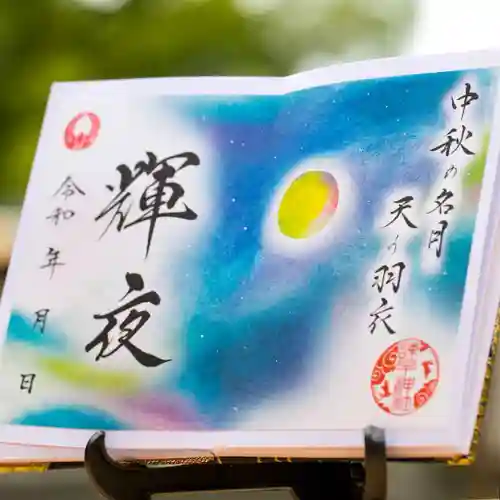 中秋の名月
天の羽衣
輝夜
令和 年 月 日